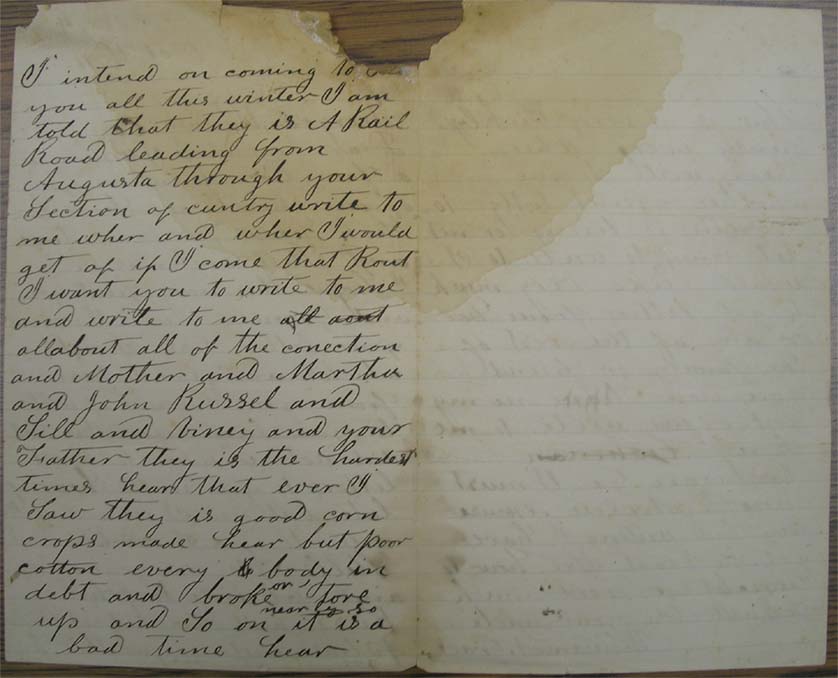 I intend on coming to
you all this winter I am
told that they is A Rail
Road leading from
Augusta through your
Section of cuntry write to
me wher and wher I would
get of if I come that Rout
I want you to write to me
and write to me all aout
allabout all of the conection
and Mother and Martha
and John Russel and
Sill and Viney and your
Father they is the hardest
times hear that ever I
Saw they is good corn
crops made hear but poor
cotton every body in
debt and broke or tore
near so
up and So on it is a
bad time hear